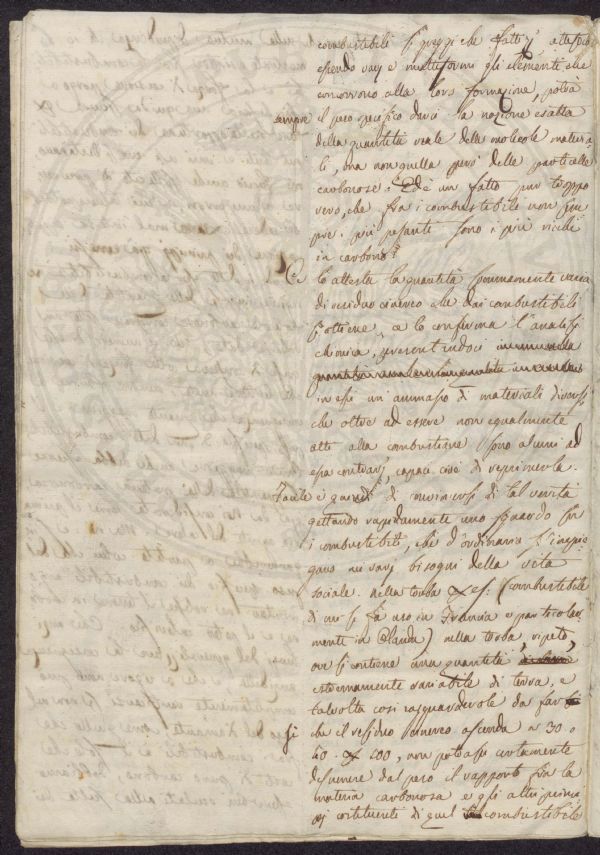 combustibili sì greggi che fatti, attesoche
essendo varj e multiformi gli elementi che
concorrono alla loro formazione, potrà
sempre il peso specifico darci la nozione esatta
della quantità reale delle molecole materia-
li, ma non quella però delle particelle
carbonose. Ed è un fatto pur troppo
vero, che fra i combustibili non sem
pre i più pesanti sono i più ricchi
in carbonio.
Ce lo attesta la quantità sommamente varia
di residuo cinereo che dai combustibili
si ottiene, ce lo conferma l'analisi
chimica, presentandoci
in essi un ammasso di materiali diversi,
che oltre ad essere non egualmente
atti alla combustione sono alcuni ad
essa contrarj, capaci cioè di reprimerla.
Facile è quindi di convincersi di tal verità
gettando rapidamente uno sguardo su
i combustibili, che d'ordinario s'impie
gano nei varj bisogni della vita
sociale. Nella torba p. es: (combustibile
di cui si fà uso in Francia e particolar
mente in Olanda) nella torba, ripeto,
ove si contiene una quantità
estremamente variabile di terra, e
talvolta così ragguardevole da far
sì che il residuo cinereo ascenda a 30 o
40 p 100, non potrassi certamente
desumere dal peso il rapporto fra la
materia carbonosa e gli altri princi
pj costituenti di quel combustibile